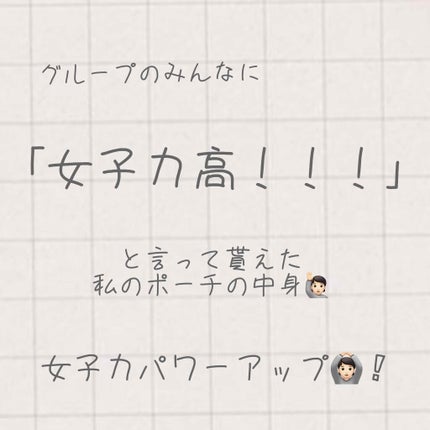 グループのみんなに
「女子力高！！！」
と言って貰えた
私のポーチの中身🙋🏻
女子力パワーアップ🙆🏻！